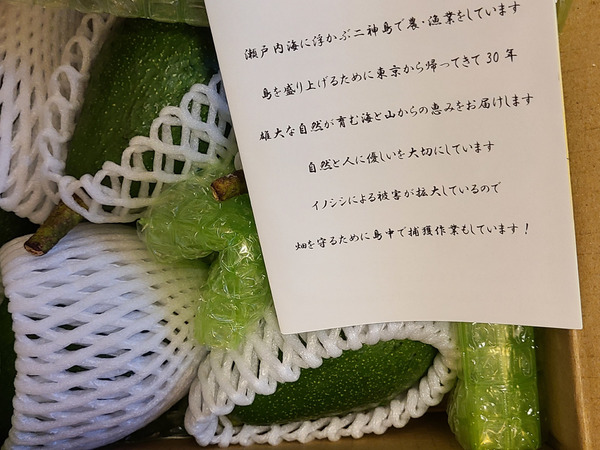 瀬戸内海に浮かぶ二神島で農・漁業をしています
島を盛り上げるために東京から帰ってきて30年
雄大な自然が育む海と山からの恵みをお届けします
自然と人に優しいを大切にしています
イノシシによる被害が拡大しているので
畑を守るために島中で捕獲作業もしています！